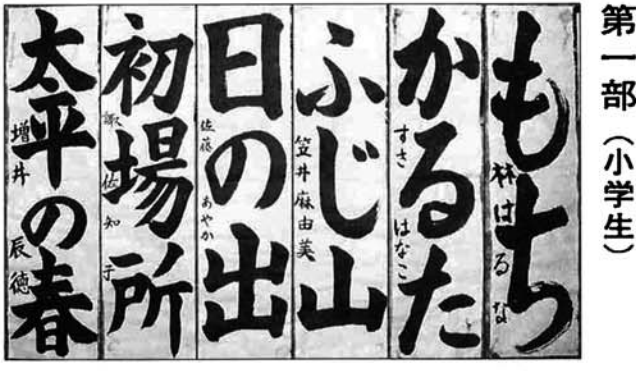 第一部（小学生）
もち
林はるな
かるた
すさはなこ
ふじ山
笠井麻由美
日の出
佐藤あやか
初場所
諏佐知子
太平の春
増井辰徳